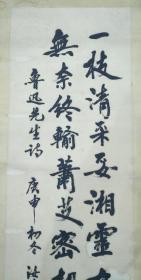 一枝清采妥湘靈
無奈終輸蕭艾密
魯迅先生詩 庚申初冬